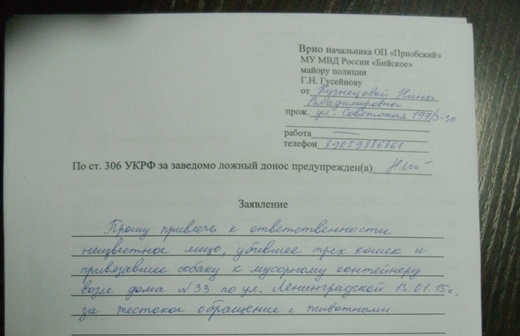 Врио начальника ОП «Приобский»
МУ МВД России «Бийское»
майору полиции
Г.Н. Гусейнову
от Кузнецовой Нины
Владимировны
прож. ул. Советская
работа
телефон
По ст. 306 УКРФ за заведомо ложный донос предупрежден(а)
Заявление
Прошу привлечь к ответственности
неизвестное лицо, убившее трех кошек и
привязавшее собаку к мусорному контейнеру
возле дома №33 по ул. Ленинградской 13.01.15г,
за жестокое обращение с животными.